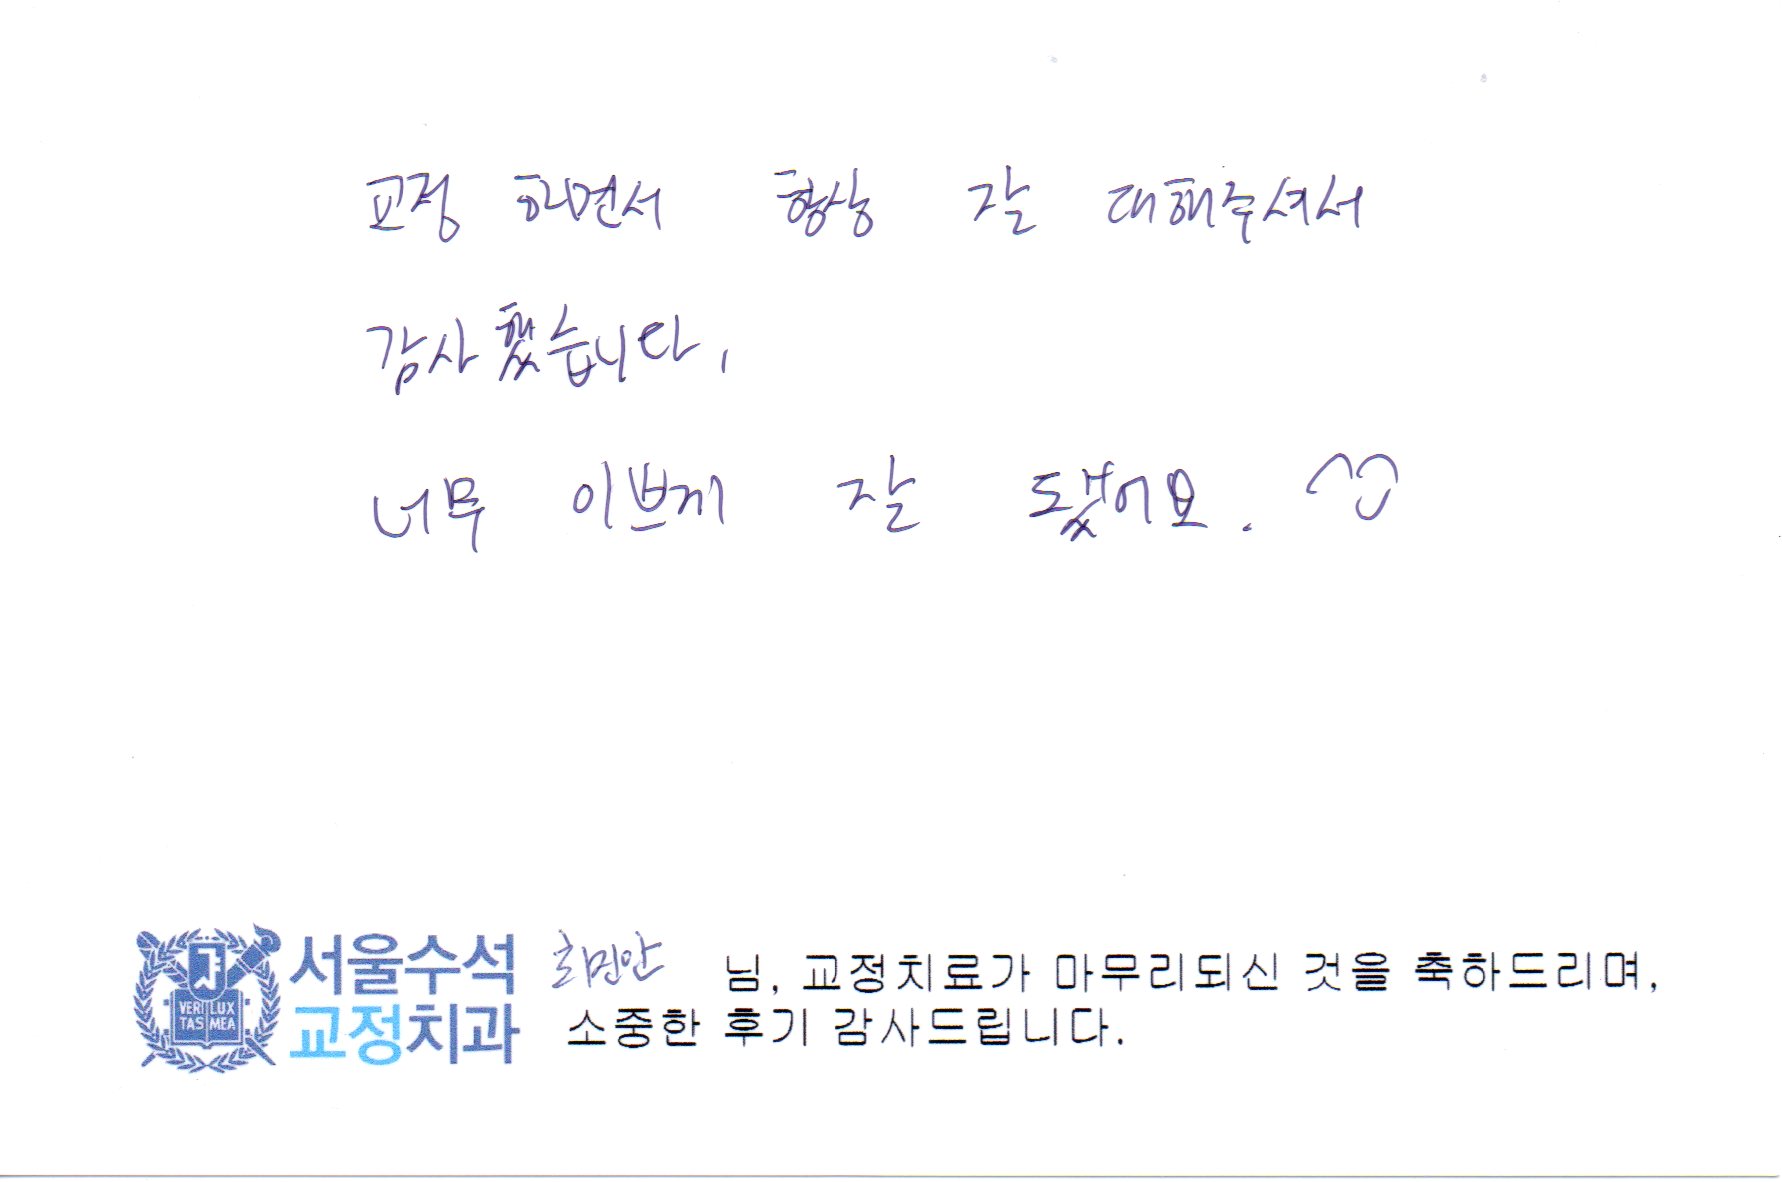 교정 하면서 항상 잘 대해주셔서
감사했습니다.
너무 이쁘게 잘 됐어요. ^^
서울수석
교정치과
VERI LUX
TAS MEA
님, 교정치료가 마무리되신 것을 축하드리며,
소중한 후기 감사드립니다.